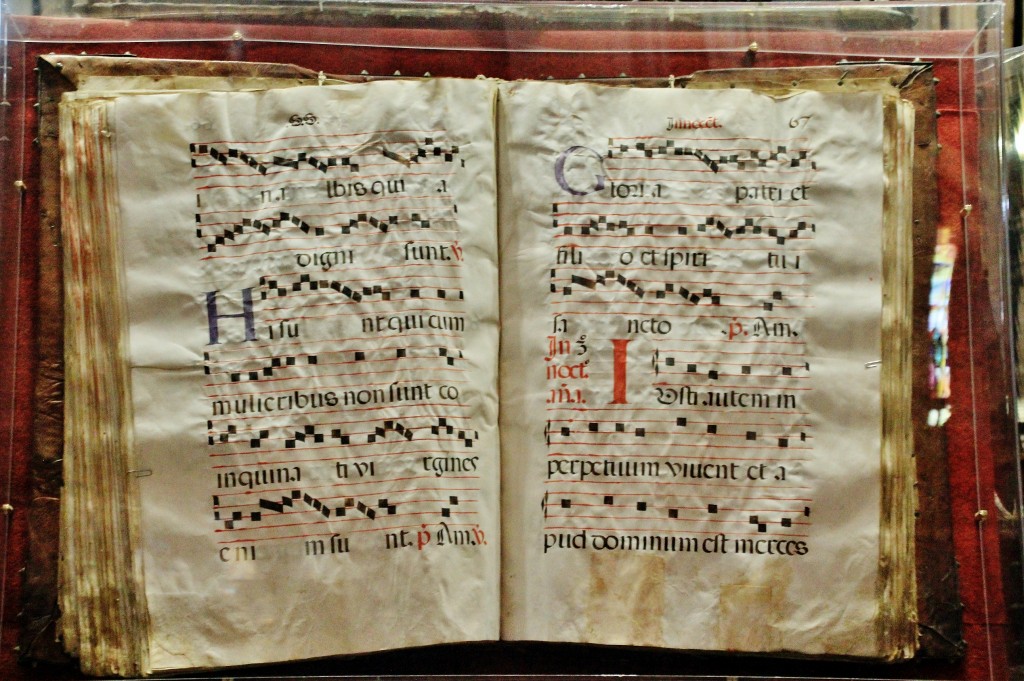 SS.
na lbis qui a
digni sunt. V.
Hi su nt qui cum
mulieribus non sunt co
inquina ti vi rgines
eni m su nt. P. Am. V.
Innocēt. 67
Glori a patri et
fili o et spiri tu i
sa ncto .P. Am.
In 3º
noct.
añ. 1.
Iusti autem in
perpetuum vivent et a
pud dominum est merces